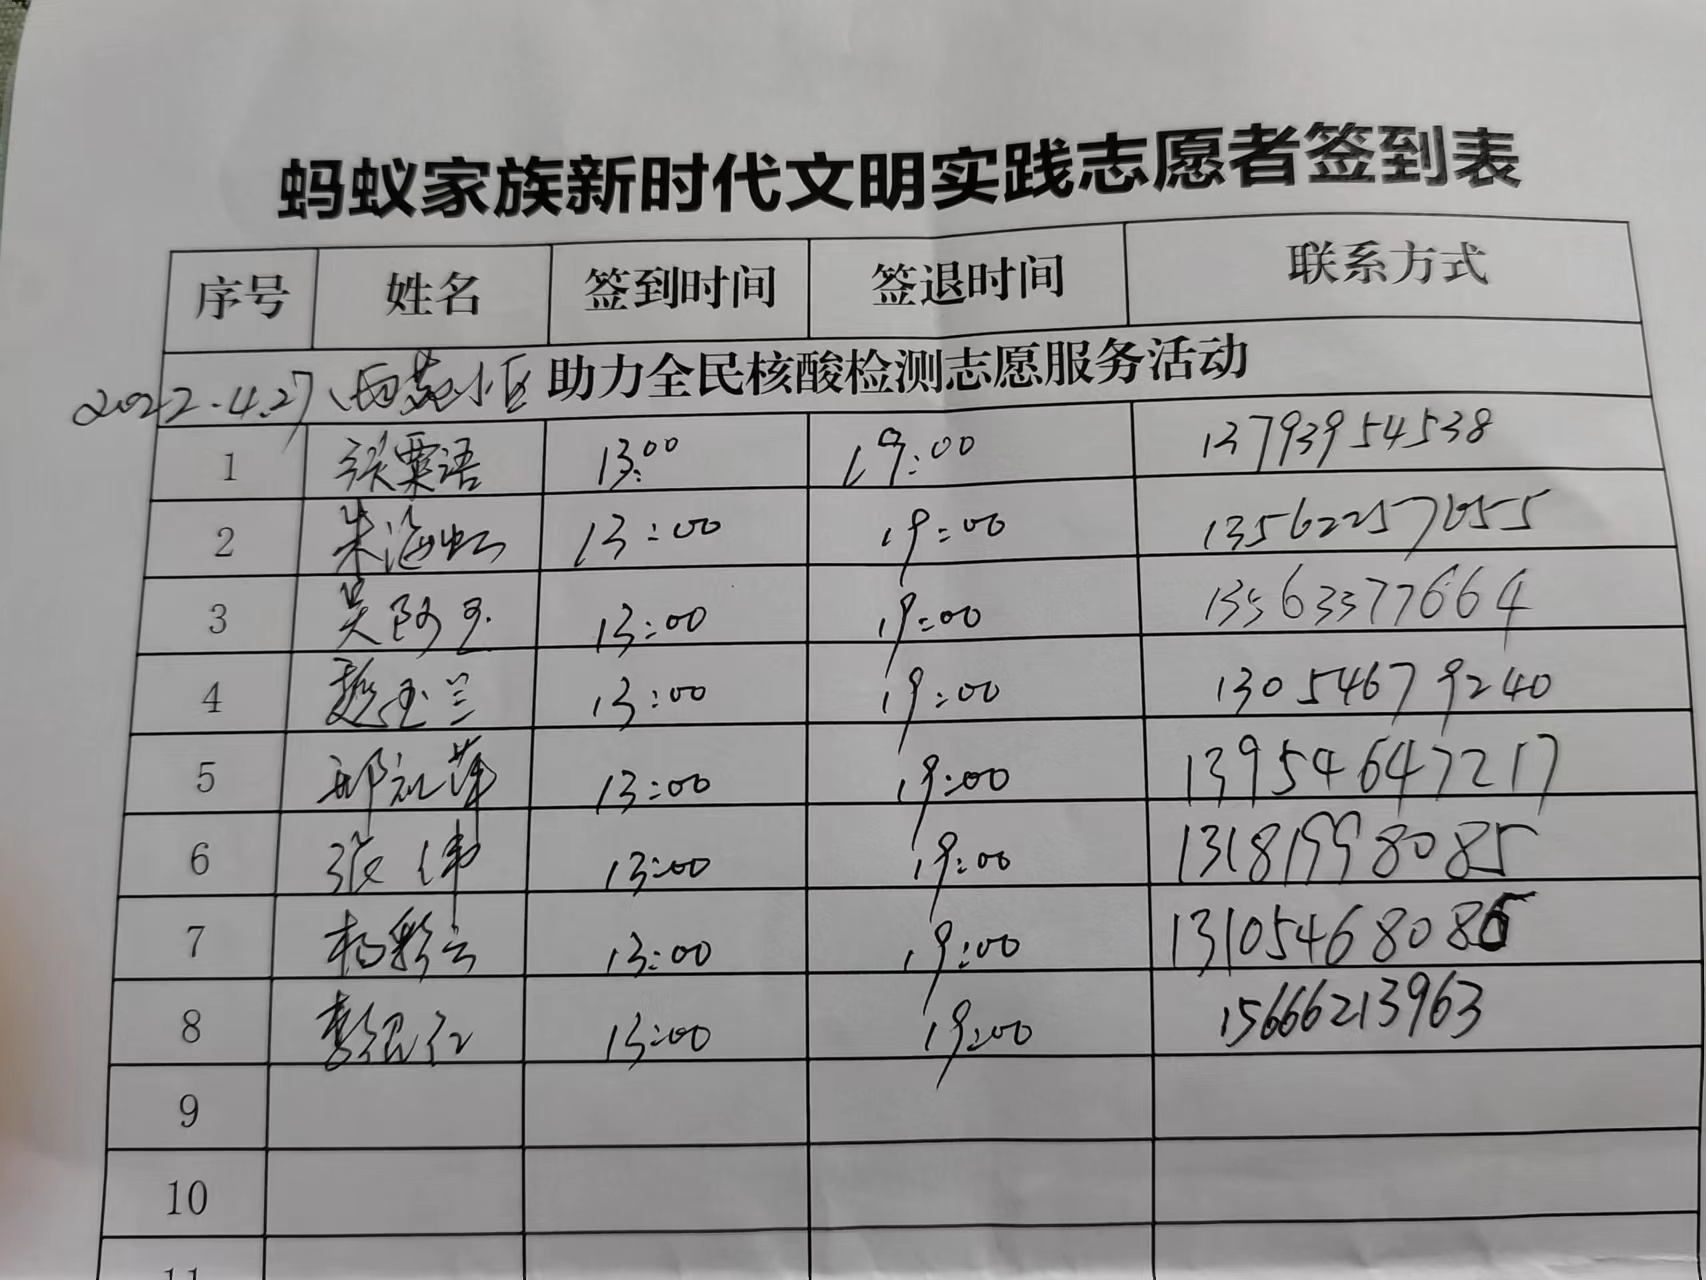 蚂蚁家族新时代文明实践志愿者签到表
序号 姓名 签到时间 签退时间 联系方式
2022.4.27 西苑小区 助力全民核酸检测志愿服务活动
1 张粟语 13:00 19:00 13793954538
2 朱海虹 13:00 19:00 13562257655
3 吴阿玉 13:00 19:00 13563377664
4 赵玉兰 13:00 19:00 13054679240
5 邢红萍 13:00 19:00 13954647217
6 张伟 13:00 19:00 13181998085
7 杨彩云 13:00 19:00 13105468086
8 13:00 19:00 15666213963
9
10
11